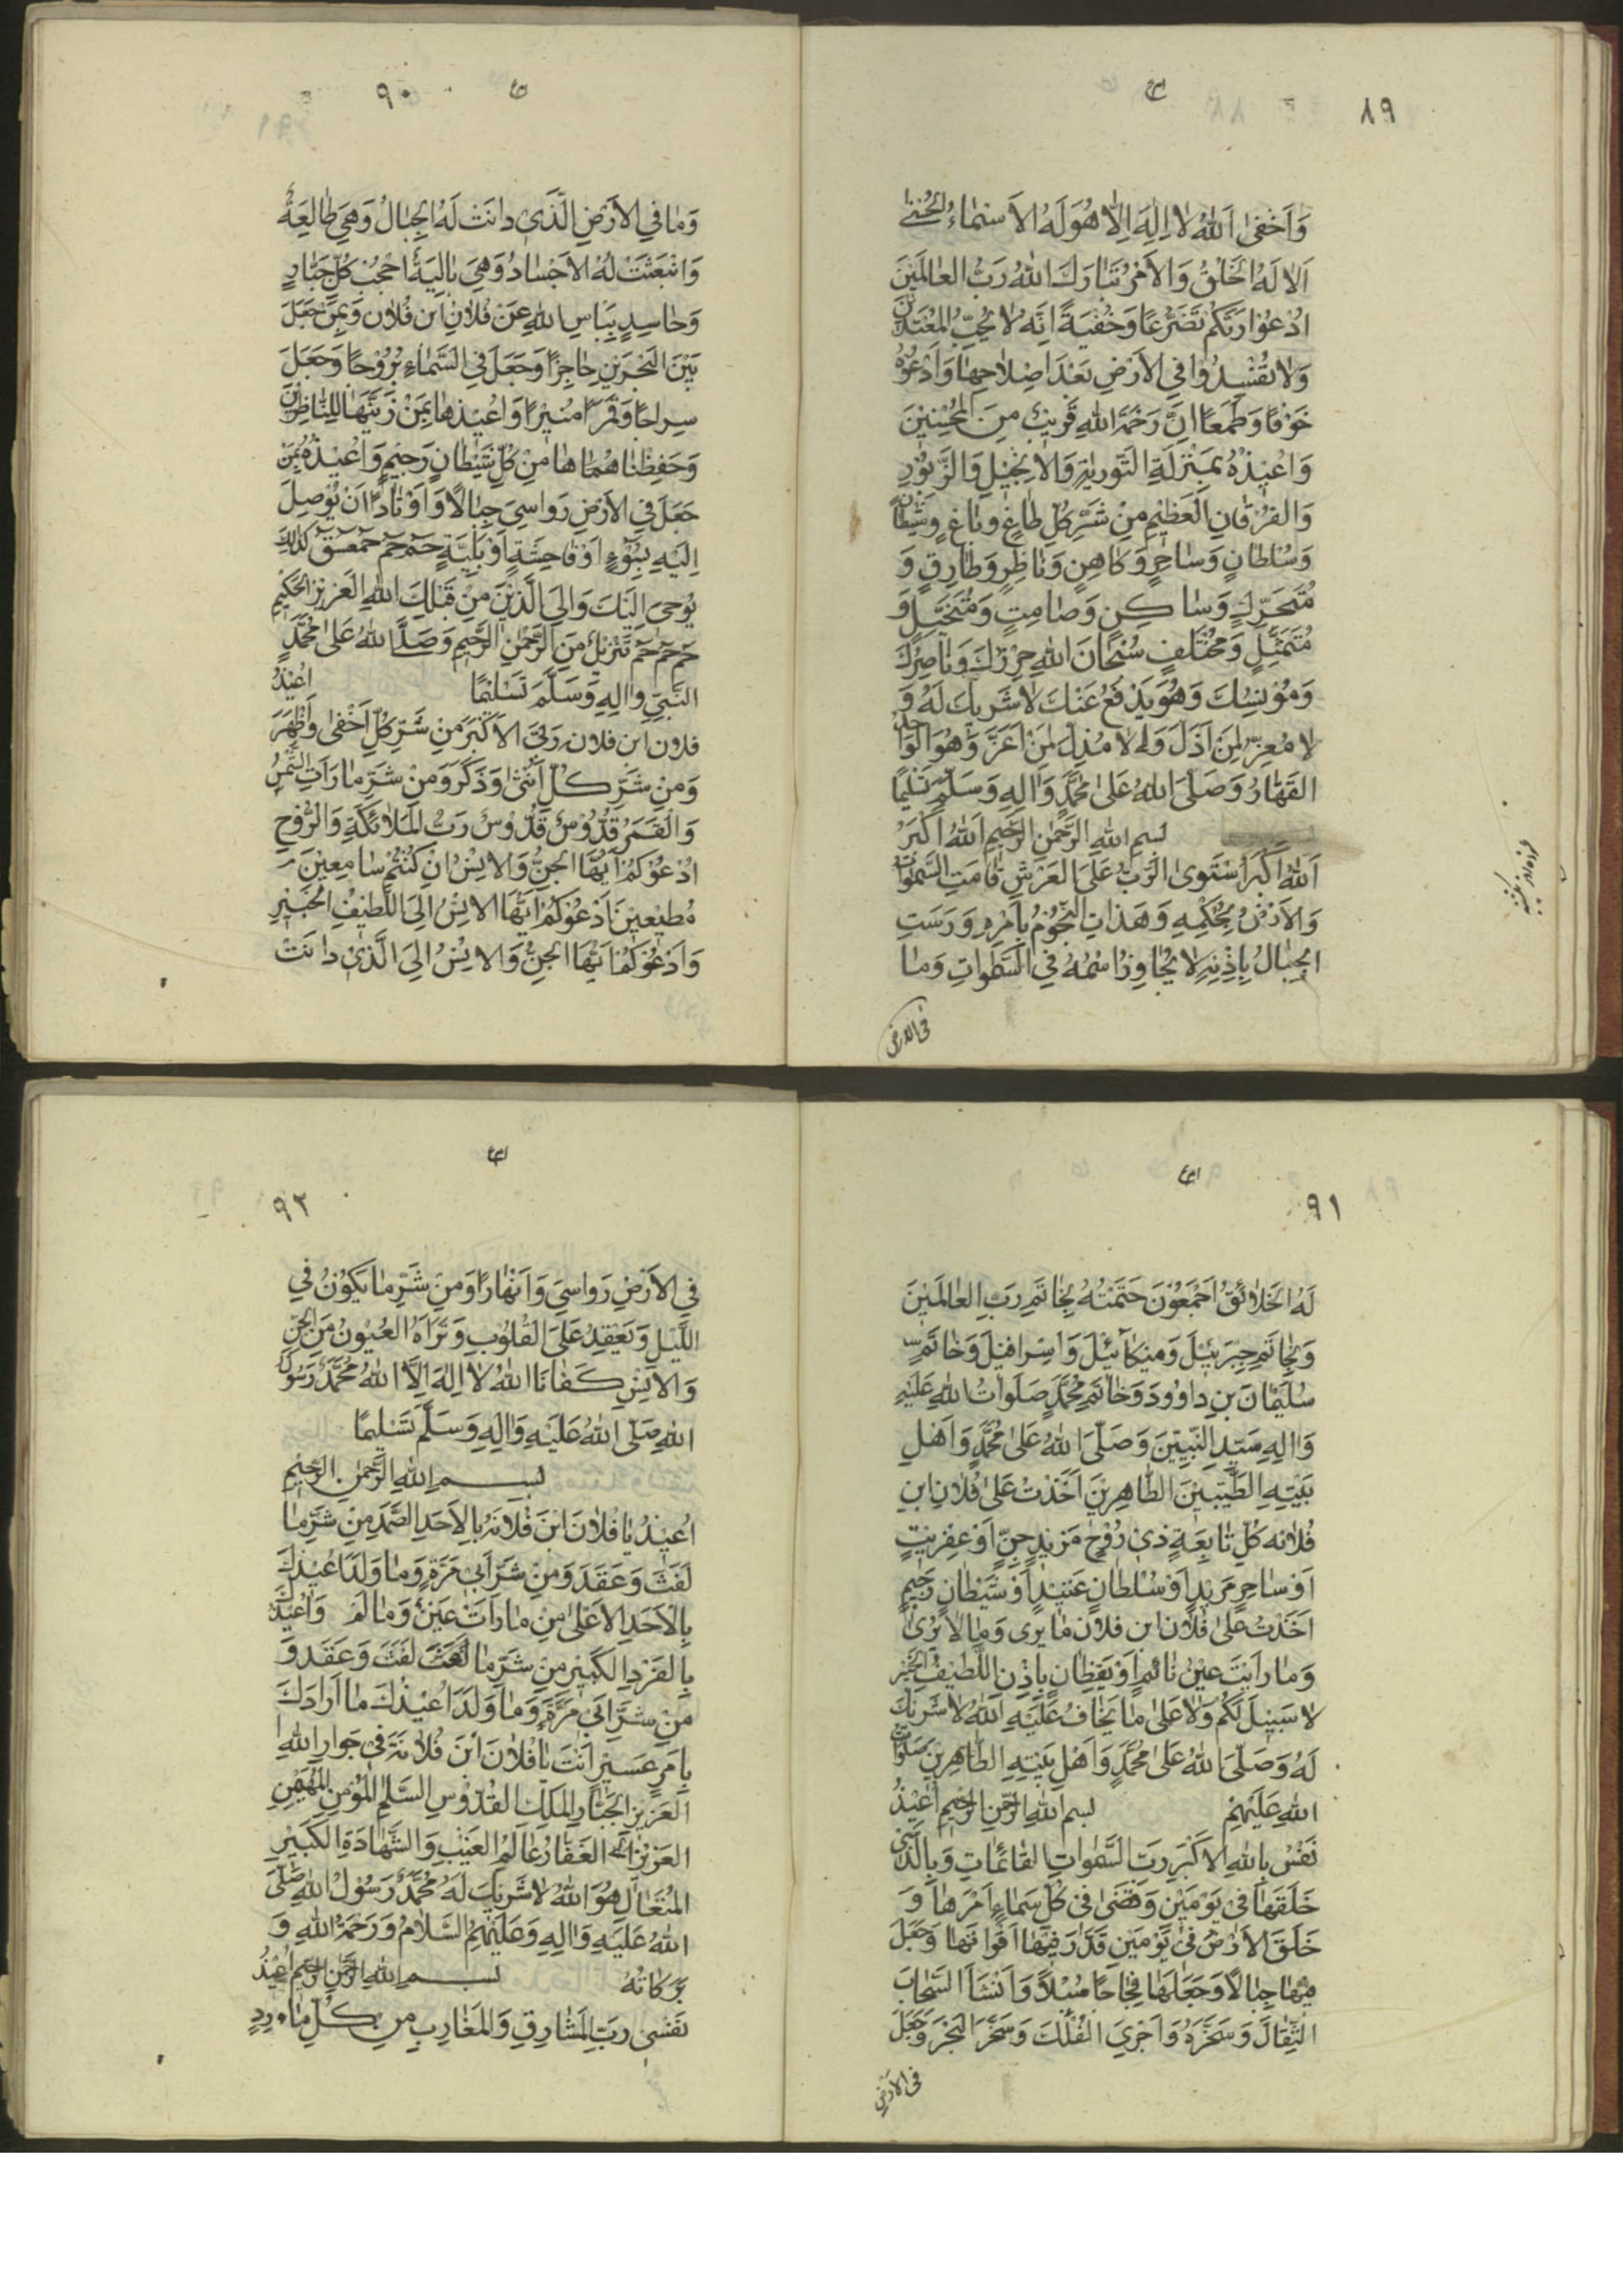 ٨٩
وَاَخْفىٰ اَللّٰهُ لاٰ اِلٰهَ اِلاّٰ هُوَ لَهُ الْاَسْمٰاءُ الْحُسْنىٰ
اَلاٰ لَهُ الْخَلْقُ وَالْاَمْرُ تَبٰارَكَ اللّٰهُ رَبُّ الْعٰالَمِيْنَ
اُدْعُوْا رَبَّكُمْ تَضَرُّعًا وَخُفْيَةً اِنَّهُ لاٰ يُحِبُّ الْمُعْتَدِيْنَ
وَلاٰ تُفْسِدُوْا فِي الْاَرْضِ بَعْدَ اِصْلاٰحِهٰا وَادْعُوْهُ
خَوْفًا وَطَمَعًا اِنَّ رَحْمَةَ اللّٰهِ قَرِيْبٌ مِنَ الْمُحْسِنِيْنَ
وَاُعِيْذُهُ بِمَنْزَلَةِ التَّوْرٰيةِ وَالْاِنْجِيْلِ وَالزَّبُوْرِ
وَالْفُرْقٰانِ الْعَظِيْمِ مِنْ شَرِّ كُلِّ طٰاغٍ وبٰاغٍ وشَيْطٰانٍ
وَسُلْطٰانٍ وَسٰاحِرٍ وَكٰاهِنٍ وَنٰاظِرٍ وَطٰارِقٍ وَ
مُتَحَرِّكٍ وَسٰاكِنٍ وَصٰامِتٍ وَمُتَخَيِّلٍ وَ
مُتَمَثِّلٍ وَمُخْتَلِفٍ سُبْحٰانَ اللّٰهِ حِرْزِكَ وَنٰاصِرِكَ
وَمُوْنِسِكَ وَهُوَ يَدْفَعُ عَنْكَ لاٰ شَرِيْكَ لَهُ وَ
لاٰ مُعِزَّ لِمَنْ اَذَلَّ وَلاٰ مُذِلَّ لِمَنْ اَعَزَّ وَهُوَ الْوٰاحِدُ
الْقَهّٰارُ وَصَلَّى اللّٰهُ عَلىٰ مُحَمَّدٍ وَاٰلِهِ وَسَلَّمَ تَسْلِيْمًا
بسم اللّٰه الرَّحْمٰنِ الرَّحِيْمِ اَللّٰهُ اَكْبَرُ
اَللّٰهُ اَكْبَرُ اسْتَوىَ الرَّبُّ عَلَى الْعَرْشِ قٰامَتِ السَّمٰوٰاتُ
وَالْاَرْضُ بِحُكْمِهِ وَهَدَاتِ النُّجُوْمُ بِاَمْرِهِ وَرَسَتِ
الْجِبٰالُ بِاِذْنِهِ لاٰ يُجٰاوِزُ اسْمُهُ فِي السَّمٰوٰاتِ وَمٰا
فى الارض
٩٠
وَمٰا فِي الْاَرْضِ الَّذِيْ دٰانَتْ لَهُ الْجِبٰالُ وَهِيَ طٰالِعَةٌ
وَانْبَعَثَتْ لَهُ الْاَجْسٰادُ وَهِيَ بٰالِيَةٌ اَحْجُبْ كُلَّ جَبّٰارٍ
وَحٰاسِدٍ بِبَاسِ اللّٰهِ عَنْ فُلاٰنِ ابْنِ فُلاٰن وَبِمَنْ جَعَلَ
بَيْنَ الْبَحْرَيْنِ حٰاجِزًا وَجَعَلَ فِي السَّمٰاءِ بُرُوْجًا وَجَعَلَ
سِرٰاجًا وَقَمَرًا مُنِيْرًا وَاُعِيْذُهٰا بِمَنْ زَيَّنَهٰا لِلنّٰاظِرِيْنَ
وَحَفِظْنٰا هُمٰا هٰا مِنْ كُلِّ شَيْطٰانٍ رَجِيْمٍ وَاُعِيْذُهُ بِمَنْ
جَعَلَ فِي الْاَرْضِ رَوٰاسِيَ جِبٰالًا وَاَوْتٰادًا اَنْ يُوْصِلَ
اِلَيْهِ بِسُوْءٍ اَوْ فٰاحِشَةٍ اَوْ بَلِيَّةٍ حم حم حمعسق كَذٰلِكَ
يُوْحى اِلَيْكَ وَاِلَى الَّذِيْنَ مِنْ قَبْلِكَ اللّٰهُ الْعَزِيْزُ الْحَكِيْمُ
حم حم حم تَنْزِيْلٌ مِنَ الرَّحْمٰنِ الرَّحِيْمِ وَصَلَّى اللّٰهُ عَلىٰ مُحَمَّدٍ
النَّبِيِّ وَاٰلِهِ وَسَلَّمَ تَسْلِيْمًا اُعِيْذُ
فلان ابن فلان رَبِّيَ الْاَكْبَرِ مِنْ شَرِّ كُلِّ اَخْفىٰ وَاَظْهَرَ
وَمِنْ شَرِّ كُلِّ اُنْثىٰ وَذَكَرَ وَمِنْ شَرِّ مٰا رَاَتِ الشَّمْسُ
وَالْقَمَرُ قُدُّوْسٌ قُدُّوْسٌ رَبُّ الْمَلاٰئِكَةِ وَالرُّوْحِ
اَدْعُوْكُمْ اَيُّهَا الْجِنُّ وَالْاِنْسُ اِنْ كُنْتُمْ سٰامِعِيْنَ
مُطِيْعِيْنَ اَدْعُوْكُمْ اَيُّهَا الْاِنْسُ اِلَى اللَّطِيْفِ الْخَبِيْرِ
وَاَدْعُوْكُمْ اَيُّهَا الْجِنُّ وَالْاِنْسُ اِلَى الَّذِيْ دٰانَتْ
٩١
لَهُ الْخَلاٰئِقُ اَجْمَعُوْنَ خَتَمْتُهُ بِخٰاتَمِ رَبِّ الْعٰالَمِيْنَ
وَبِخٰاتَمِ جِبْرَئِيْلَ وَمِيْكٰائِيْلَ وَاِسْرٰافِيْلَ وَخٰاتَمِ
سُلَيْمٰانَ بْنِ دٰاوُودَ وَخٰاتَمِ مُحَمَّدٍ صَلَوٰاتُ اللّٰهِ عَلَيْهِ
وَاٰلِهِ سَيِّدِ النَّبِيِّيْنَ وَصَلَّى اللّٰهُ عَلىٰ مُحَمَّدٍ وَاَهْلِ
بَيْتِهِ الطَّيِّبِيْنَ الطّٰاهِرِيْنَ اَخَذْتُ عَلىٰ فُلاٰنِ ابْنِ
فُلاٰنه كُلَّ تٰابِعَةٍ ذِيْ رُوْحٍ مَرِيْدٍ جِنٍّ اَوْ عِفْرِيْتٍ
اَوْ سٰاحِرٍ مَرِيْدٍ اَوْ سُلْطٰانٍ عَنِيْدٍ اَوْ شَيْطٰانٍ رَجِيْمٍ
اَخَذْتُ عَلىٰ فُلاٰن ابن فلاٰن مٰا يُرى وَمٰا لاٰ يُرىٰ
وَمٰا رَاَيْتَ عَيْنُ نٰائِمٍ اَوْ يَقْظٰانٍ بِاِذْنِ اللَّطِيْفِ الْخَبِيْرِ
لاٰ سَبِيْلَ لَكُمْ وَلاٰ عَلىٰ مٰا يَخٰافُ عَلَيْهِ اَللّٰهُ لاٰ شَرِيْكَ
لَهُ وَصَلَّى اللّٰهُ عَلىٰ مُحَمَّدٍ وَاَهْلِ بَيْتِهِ الطّٰاهِرِيْنَ صَلَوٰاتُ
اللّٰهِ عَلَيْهِمْ بسم اللّٰه الرَّحْمٰنِ الرَّحِيْمِ اُعِيْذُ
نَفْسِي بِاللّٰهِ الْاَكْبَرِ رَبِّ السَّمٰوٰاتِ الْقٰائِمٰاتِ وَبِالَّذِيْ
خَلَقَهٰا فِيْ يَوْمَيْنِ وَقَضىٰ فِيْ كُلِّ سَمٰاءٍ اَمْرَهٰا وَ
خَلَقَ الْاَرْضَ فِيْ يَوْمَيْنِ وَقَدَّرَ فِيْهٰا اَقْوٰاتَهٰا وَجَعَلَ
فِيْهٰا جِبٰالًا وَجَعَلَهٰا فِجٰاجًا سُبُلًا وَاَنْشَأَ السَّحٰابَ
الثِّقٰالَ وَسَخَّرَهُ وَاَجْرَيَ الْفُلْكَ وَسَخَّرَ الْبَحْرَ وَجَعَلَ
فى الارض
٩٢
فِي الْاَرْضِ رَوٰاسِيَ وَاَنْهٰارًا وَمِنْ شَرِّ مٰا يَكُوْنُ فِي
اللَّيْلِ وَيَعْقِدُ عَلَى الْقُلُوْبِ وَتَرٰاهُ الْعُيُوْنُ مِنَ الْجِنِّ
وَالْاِنْسِ كَفٰانَا اللّٰهُ لاٰ اِلٰهَ اِلَّا اللّٰهُ مُحَمَّدٌ رَسُوْلُ
اللّٰهِ صَلَّى اللّٰهُ عَلَيْهِ وَاٰلِهِ وَسَلَّمَ تَسْلِيمًا
بسم اللّٰه الرَّحْمٰنِ الرَّحِيْمِ
اُعِيْذُ يٰا فُلاٰنَ ابْنَ فُلاٰنَةُ بِالْاَحَدِ الصَّمَدِ مِنْ شَرِّ مٰا
نَفَثَ وَعَقَدَ وَمِنْ شَرِّ اَبِيْ مَرَّةٍ وَمٰا وَلَدَ اُعِيْذُكَ
بِالْاَحَدِ الْاَعْلىٰ مِنْ مٰا رَاَتْ عَيْنٌ وَمٰا لَمْ وَاُعِيْذُكَ
بِالْفَرْدِ الْكَبِيْرِ مِنْ شَرِّ مٰا نَفَثَ وَعَقَدَ وَ
مِنْ شَرِّ اَبِيْ مَرَّةٍ وَمٰا وَلَدَ اُعِيْذُكَ مٰا اَرٰادَكَ
بِاَمْرٍ عَسِيْرٍ اَنْتَ يٰا فُلاٰنَ ابْنَ فُلاٰنَةَ فِيْ جَوٰارِ اللّٰهِ
الْعَزِيْزِ الْجَبّٰارِ الْمَلِكِ الْقُدُّوْسِ السَّلاٰمِ الْمُؤْمِنِ الْمُهَيْمِنِ
الْعَزِيْزِ الْغَفّٰارُ عٰالِمُ الْغَيْبِ وَالشَّهٰادَةِ الْكَبِيْرِ
الْمُتَعٰالِ هُوَ اللّٰهُ لاٰ شَرِيْكَ لَهُ مُحَمَّدٌ رَسُوْلُ اللّٰهِ صَلَّى
اللّٰهُ عَلَيْهِ وَاٰلِهِ وَعَلَيْهِمُ السَّلاٰمُ وَرَحْمَةُ اللّٰهِ وَ
بَرَكٰاتُهُ بسم اللّٰه الرَّحْمٰنِ الرَّحِيْمِ اُعِيْذُ
نَفْسِيْ رَبِّ الْمَشٰارِقِ وَالْمَغٰارِبِ مِنْ كُلِّ مٰارِدٍ